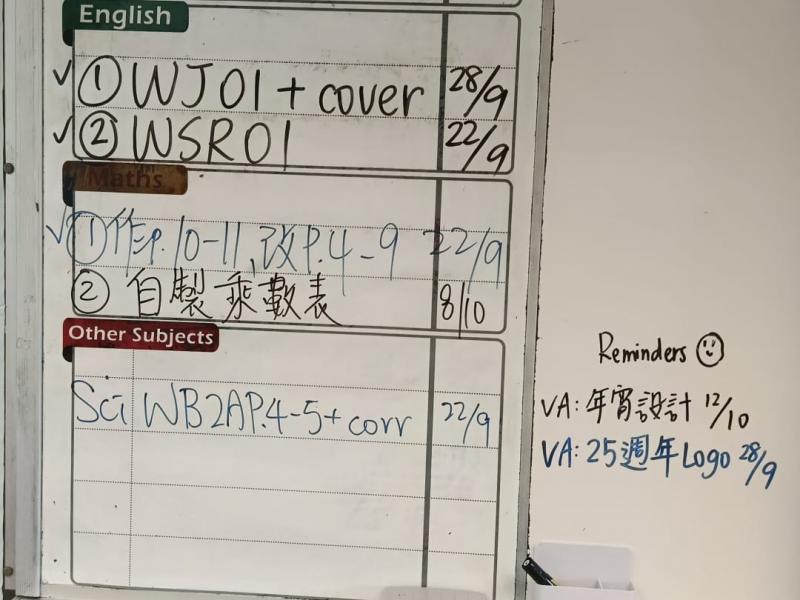 English
✓ ① WJ01 + cover 28/9
✓ ② WSR01 22/9
Maths
✓ ① 作P.10-11, 改P.4-9 22/9
② 自製乘數表 8/10
Other Subjects
Sci WB2A P.4-5 + corr 22/9
Reminders ☺
VA: 年宵設計 12/10
VA: 25週年Logo 28/9